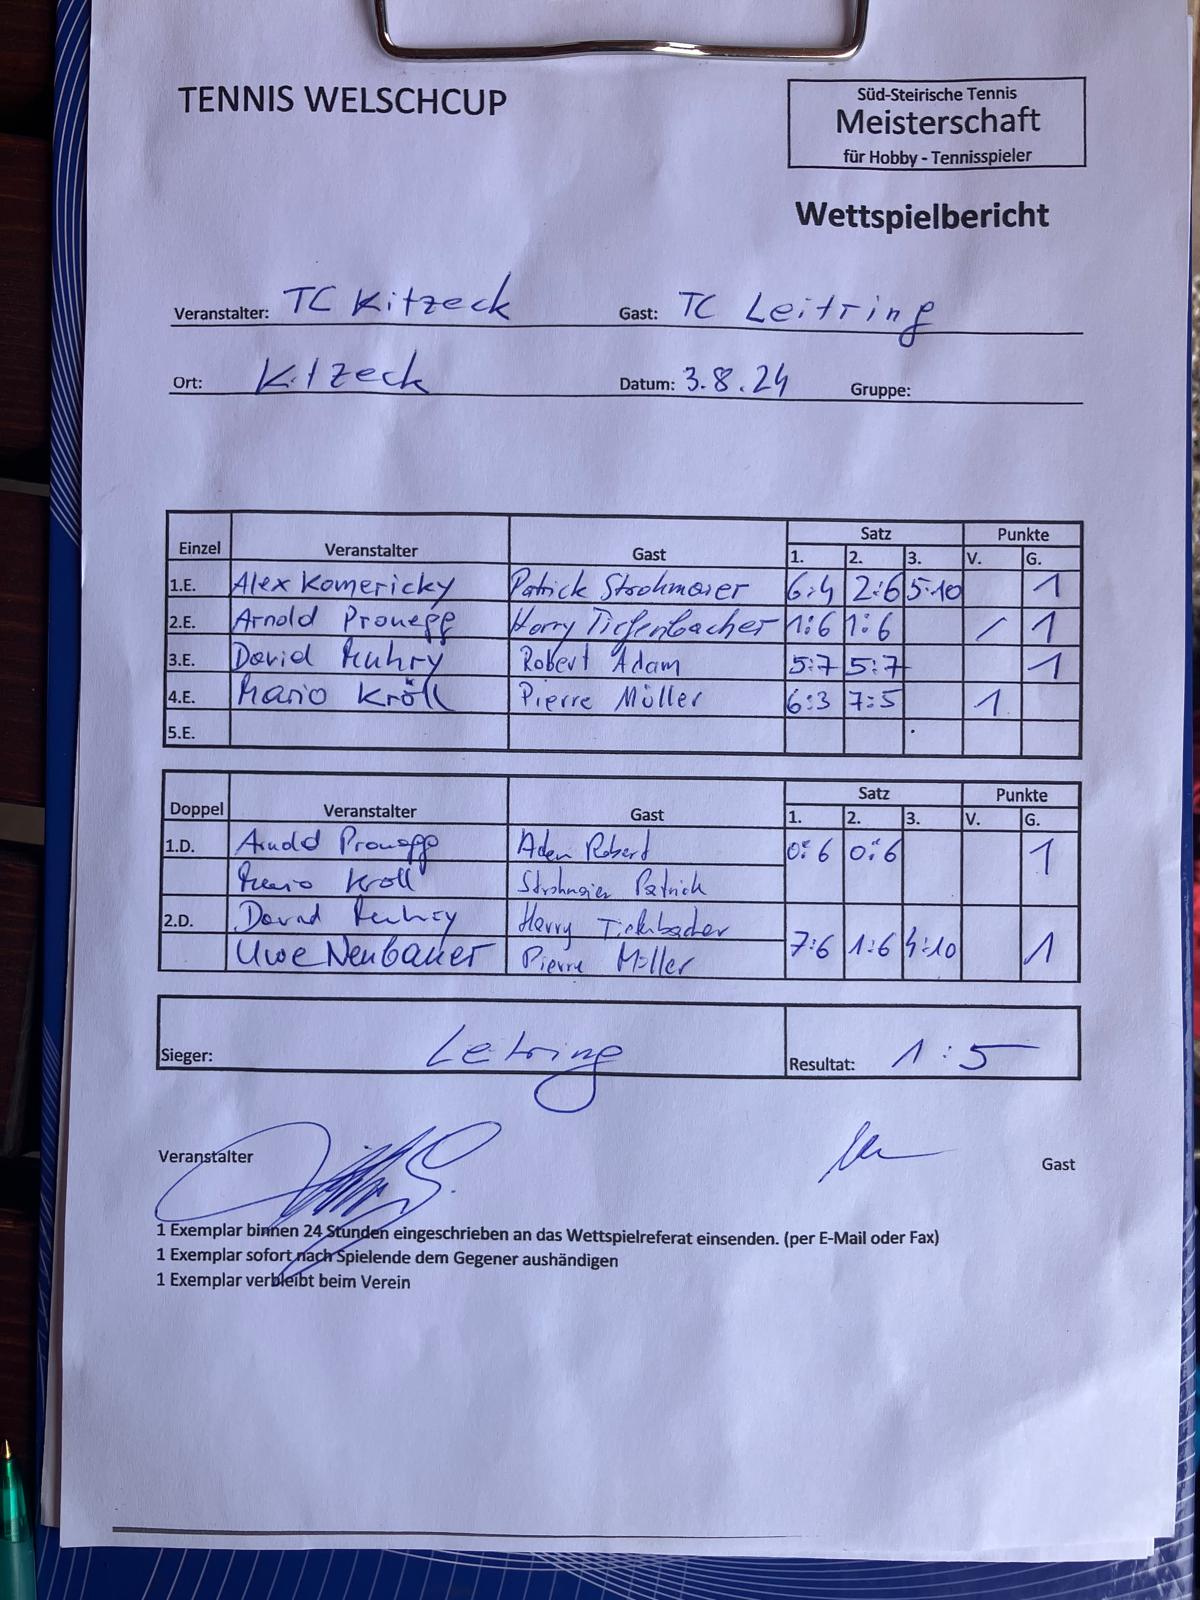 TENNIS WELSCHCUP
Süd-Steirische Tennis
Meisterschaft
für Hobby - Tennisspieler
Wettspielbericht
Veranstalter: TC Kitzeck Gast: TC Leitring
Ort: Kitzeck Datum: 3.8.24 Gruppe:
Einzel Veranstalter Gast Satz Punkte
1. 2. 3. V. G.
1.E. Alex Komericky Patrick Strohmaier 6:4 2:6 5:10 1
2.E. Arnold Pronegg Harry Tiefenbacher 1:6 1:6 / 1
3.E. David Muhry Robert Adam 5:7 5:7 1
4.E. Mario Kröll Pierre Müller 6:3 7:5 1
5.E.
Doppel Veranstalter Gast Satz Punkte
1. 2. 3. V. G.
1.D. Arnold Pronegg Adam Robert 0:6 0:6 1
Mario Kröll Strohmaier Patrick
2.D. David Muhry Harry Tiefenbacher 7:6 1:6 4:10 1
Uwe Neubauer Pierre Müller
Sieger: Leitring Resultat: 1:5
Veranstalter Gast
1 Exemplar binnen 24 Stunden eingeschrieben an das Wettspielreferat einsenden. (per E-Mail oder Fax)
1 Exemplar sofort nach Spielende dem Gegener aushändigen
1 Exemplar verbleibt beim Verein